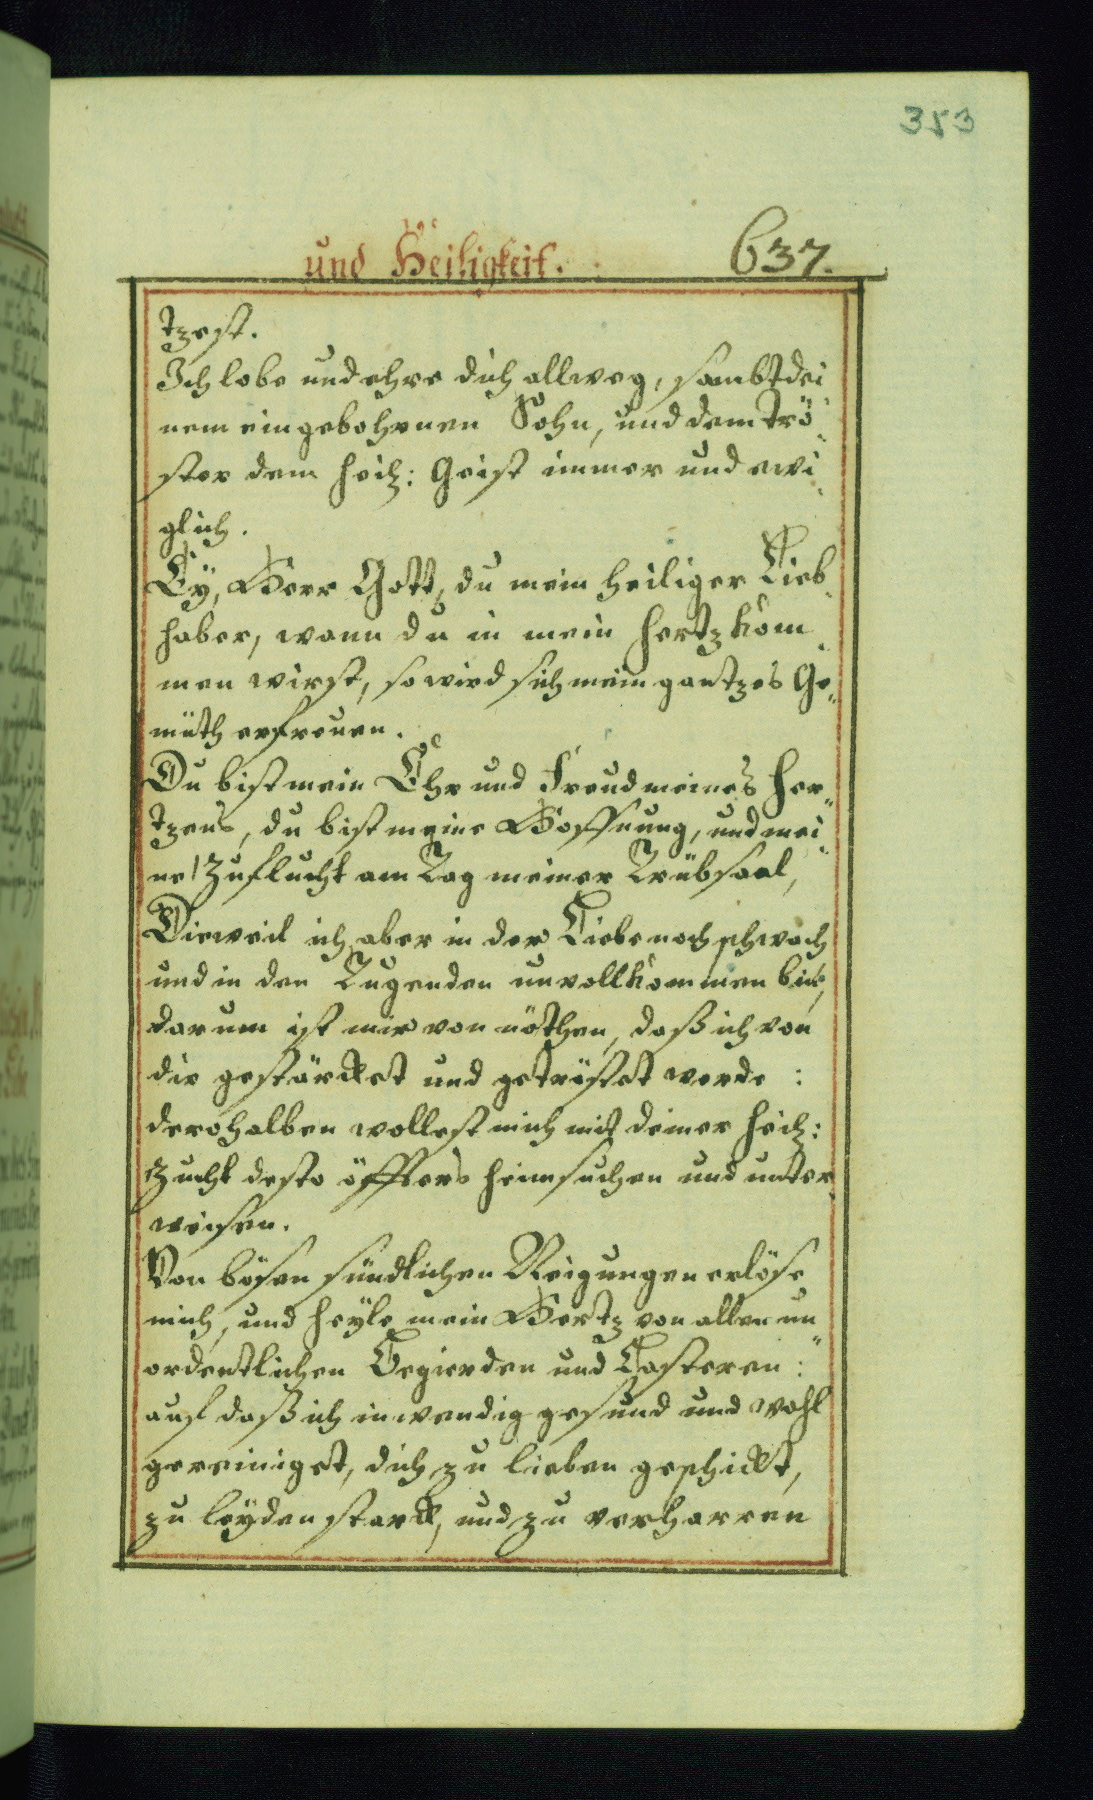 353
und Heiligkeit. 637.
tzest.
Ich lobe und ehre dich allweg, sambt dei
nem eingebohrnen Sohn, und dem Trö„
ster dem heil: Geist immer und ewi„
glich.
Ey, Herr Gott, du mein heiliger Lieb„
haber, wann du in mein Hertz kom„
men wirst, so wird sich mein gantzes Ge„
müth erfreuen.
Du bist mein Ehr und Freud meines Her„
tzens, du bist meine Hoffnung, und mei„
ne Zuflucht am Tag meiner Trübsaal,
Dieweil ich aber in der Liebe noch schwach
und in den Tugenden unvollkommen bin,
darum ist mir von nöthen, daß ich von
dir gestärcket und getröstet werde:
derohalben wollest mich mit deiner heil:
Zucht desto öffters heimsuchen und unter„
weisen.
Von bösen sündlichen Neigungen erlöse
mich, und heyle mein Hertz von allen un„
ordentlichen Begierden und Lasteren:
auf daß ich inwendig gesund und wohl
gereiniget, dich zu lieben geschickt,
zu leyden starck, und zu verharren